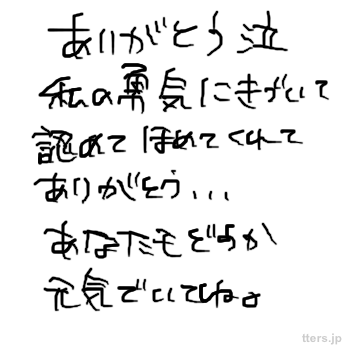 ありがとう泣
私の勇気にきづいて
認めてほめてくれて
ありがとう...
あなたもどうか
元気でいてねよ
tters.jp